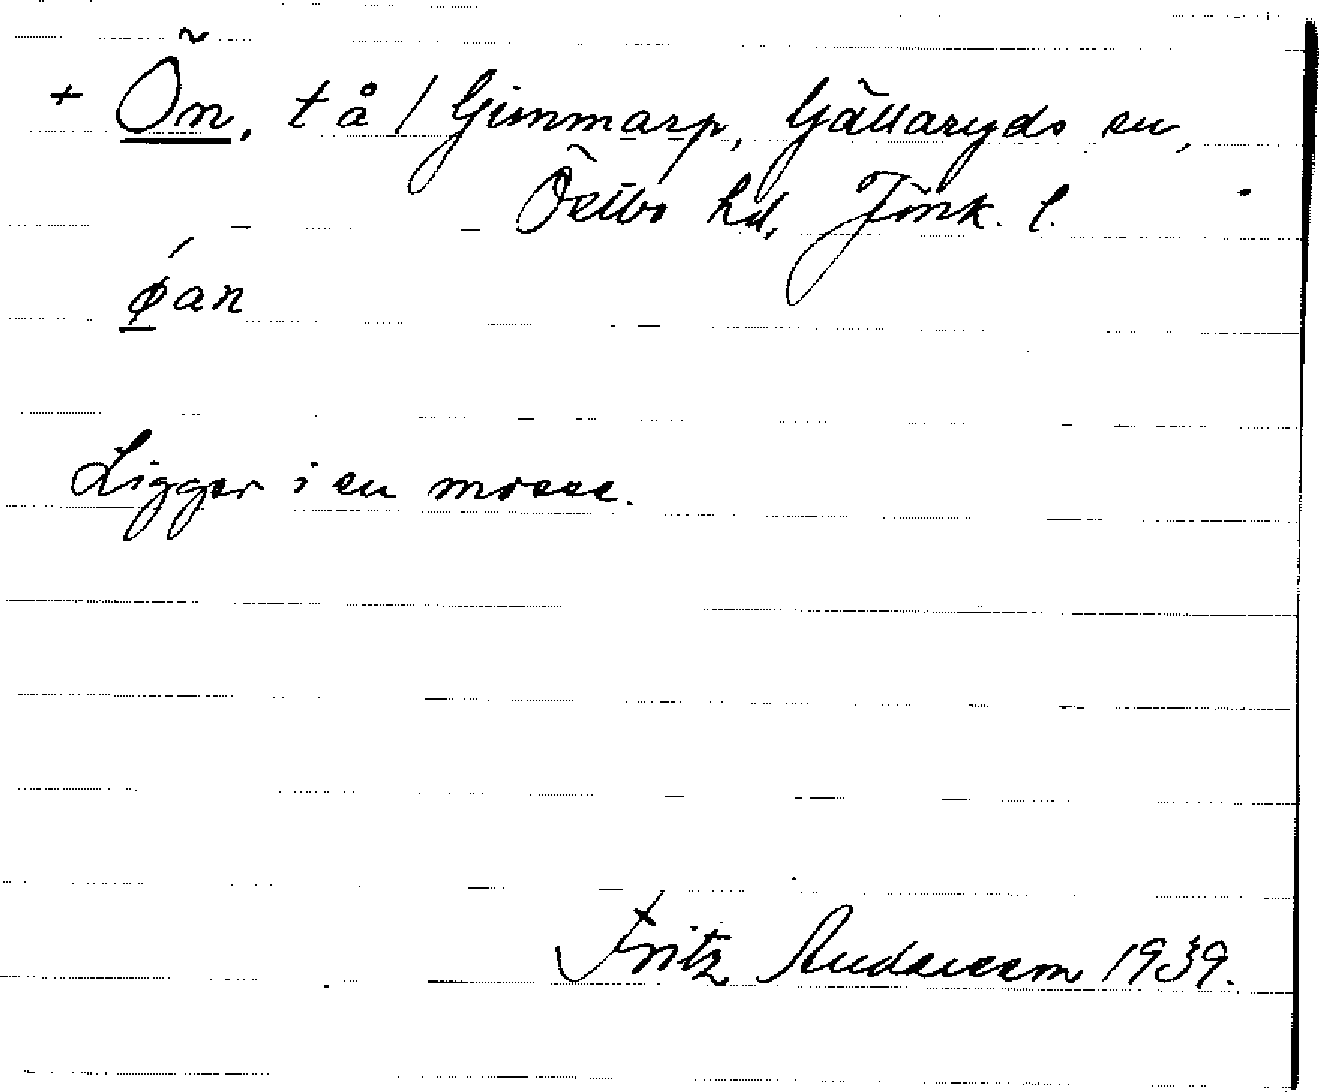 + Ön, t å / Gimmarp, Gällaryds sn,
Östbo hd, Jönk. l.
ǿan
Ligger i en mosse.
Fritz Andersson 1939.